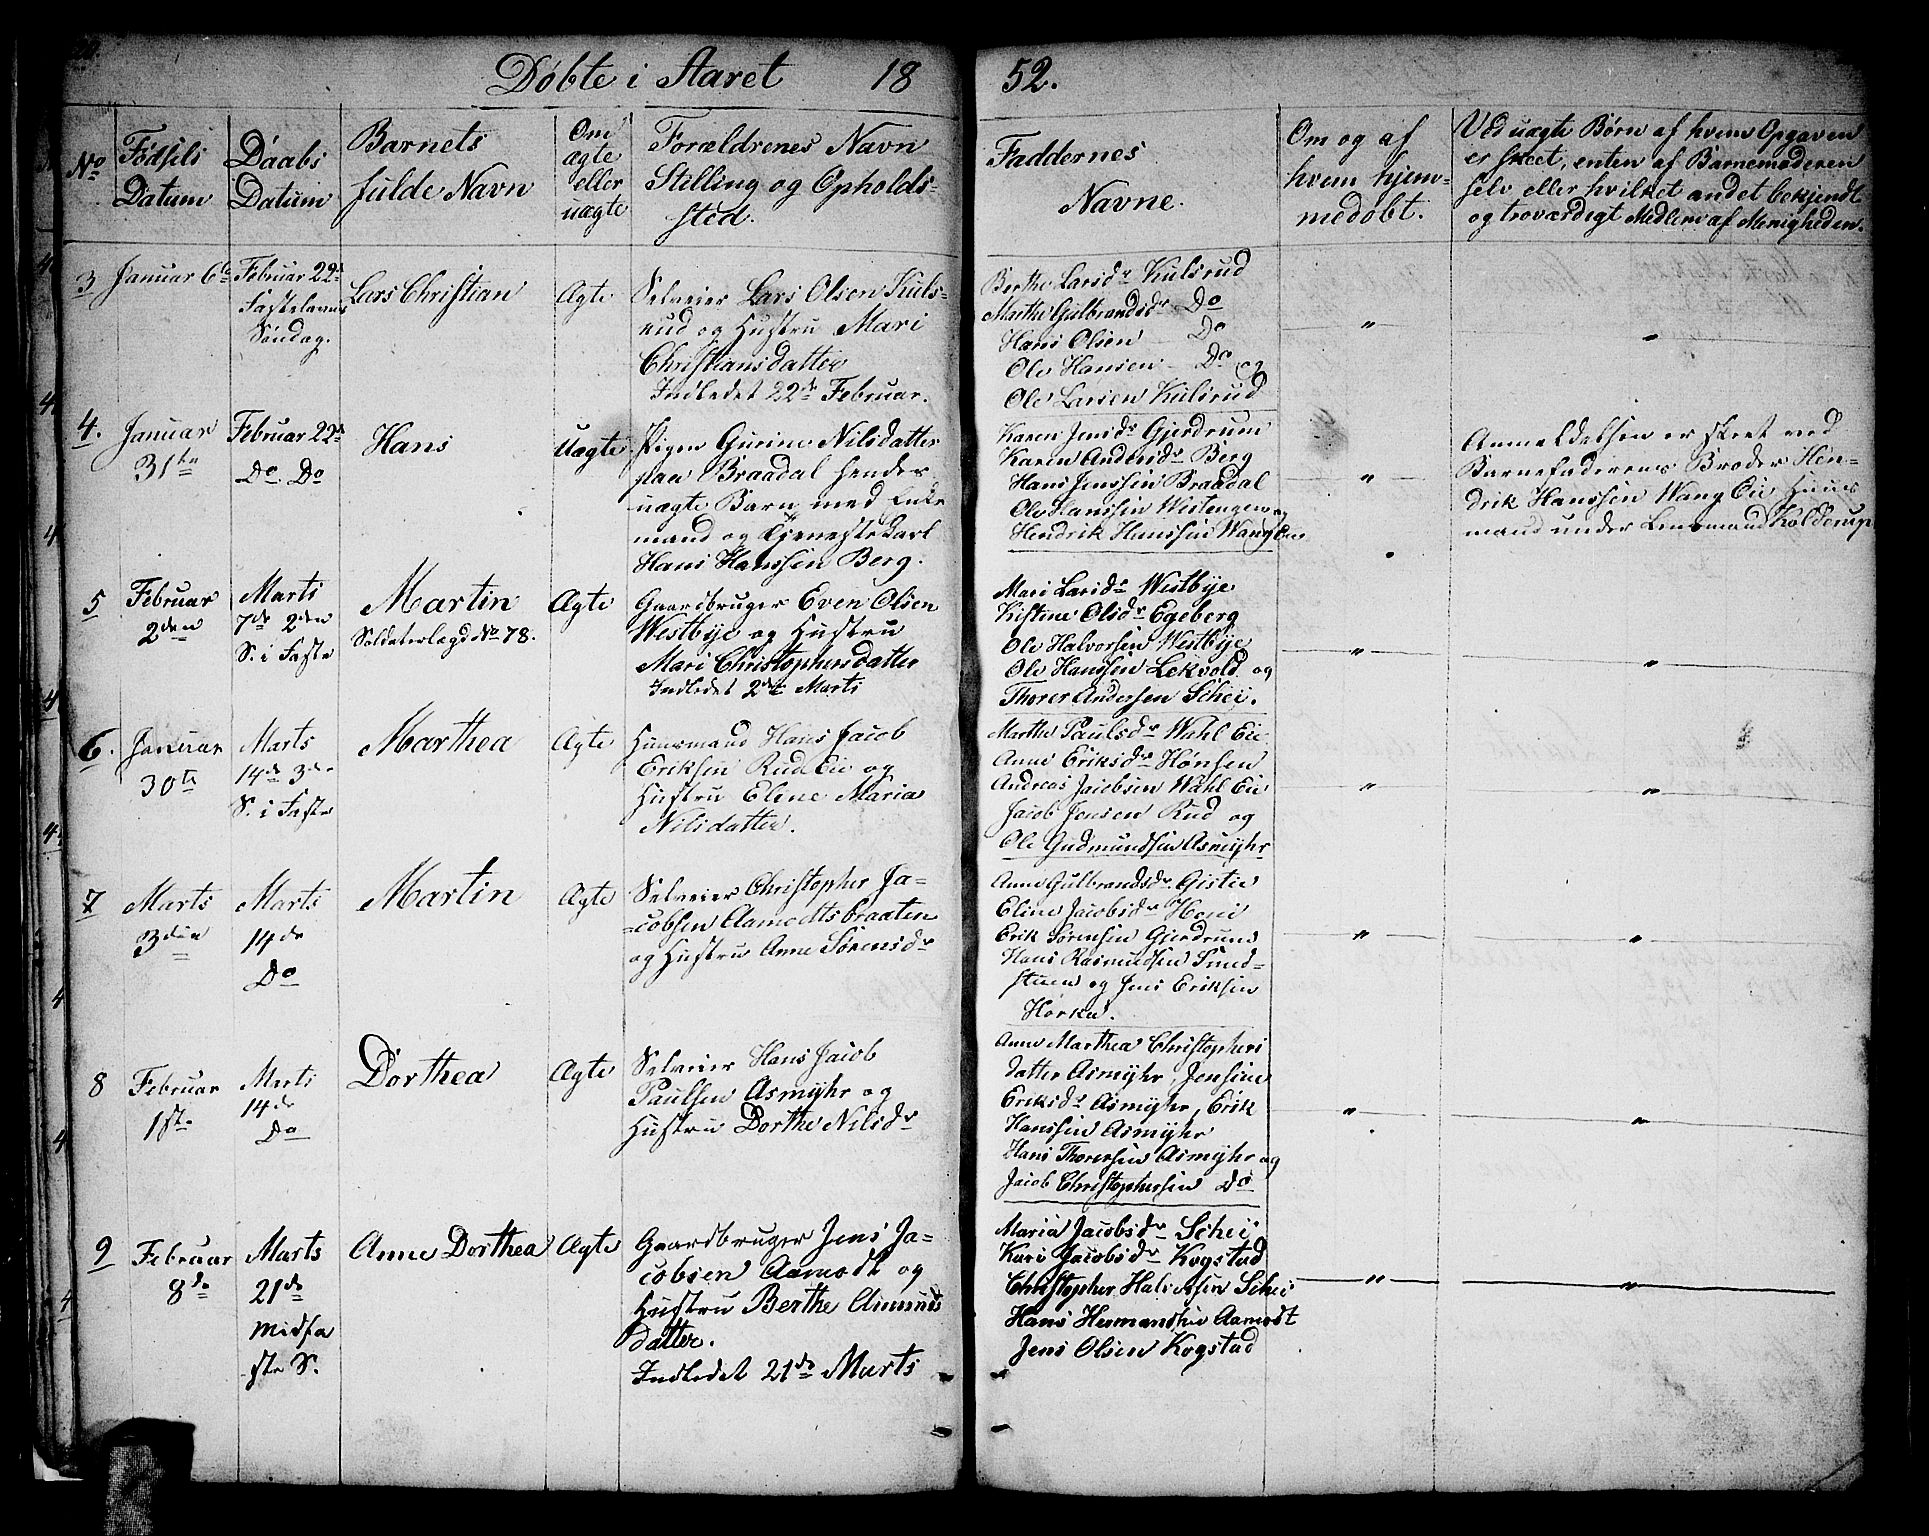 Døbte i Aaret 18 52.
No
Fødsels Datum
Daabs Datum
Barnets fulde Navn
Om ægte eller uægte
Forældrenes Navn Stilling og Opholds-sted.
Faddernes Navne.
Om og af hvem hjem-medøbt.
Ved uægte Børn af hvem Opgaven
er skeet, enten af Barnemoderen
selv eller hvilket andet bekjendt
og troværdigt Medlem af Menigheden.
3
Januar 6te
Februar 22de
Fastelavns
Søndag.
Lars Christian
Ægte
Selveier Lars Olsen Kuls-
rud og Hustru Mari
Christiansdatter
Indledet 22de Februar.
Berthe Larsdr Kulsrud
Marthe Gulbrandsdr Do
Hans Olsen - Do
Ole Hansen - Do og
Ole Larsen Kulsrud
"
"
4.
Januar
31te
Februar 22de
Do Do
Hans
Uægte
Pigen Gurine Nilsdatter
Braadal hendes
uægte Barn med Enke
mand og Tjenestekarl
Hans Hanssen Berg.
Karen Jensdr Gjerdrum
Karen Andersdr Berg
Hans Jenssen Braadal
Ole Hanssen Westengen og
Hendrik Hanssen Wang Eie
"
Anmeldelsen er skeet ved
Barnefaderens Broder Hen-
drik Hanssen Wang Eie Huus
mand under Lensmand Kolderup
5
Februar
2den
Marti
7de 2den
S. i Faste
Martin
Soldaterlægd No 78.
Ægte
Gaardbruger Even Olsen
Westbye og Hustru
Mari Christophersdatter
Indledet 2de Marti
Mari Larsdr Westbye
Kistine Olsdr Egeberg
Ole Halvorsen Westbye
Ole Hanssen Lekvold og
Thorer Andersen Schei.
"
"
6.
Januar
30te
Marts
14de 3de
S. i Faste
Marthea
Ægte
Huusmand Hans Jacob
Eriksen Rud Eie og
Hustru Eline Maria
Nilsdatter.
Marthe Paulsdr Wahl Eie
Anne Eriksdr Hønsen
Andreas Jacobsen Wahl Eie
Jacob Jensen Rud og
Ole Gudmundsen Asmyhr
"
"
7
Marts
3die
Marts
14de
Do
Martin
Ægte
Selveier Christopher Ja-
cobsen Aamodtsbraaten
og Hustru Anne Sørensdr
Anne Gulbrandsdr Gistie
Eline Jacobsdr Honi
Erik Sørensen Gjerdrum
Hans Rasmussen Sund-
stuen og Jens Eriksen
Horka.
"
"
8
Februar
1ste
Marti
14de
Do
Dorthea
Ægte
Selveier Hans Jacob
Paulsen Asmyhr og
Hustru Dorthe Nilsdr
Anne Marthea Christophers
datter Asmyhr, Jensine
Eriksdr Asmyhr, Erik
Hanssen Asmyhr
Hans Thorersen Asmyhr og
Jacob Christophersen Do
"
"
9
Februar
8de
Marts
21de
Midfa
ste S.
Anne Dorthea
Ægte
Gaardbruger Jens Ja-
cobsen Aamodt og
Hustru Berthe Amunds
datter.
Indledet 21de Marts
Maria Jacobsdr Schei
Kari Jacobsdr Kogstad
Christopher Schei
Hans Hermandsen Aamodt
Jens Olsen Kogstad
"
"